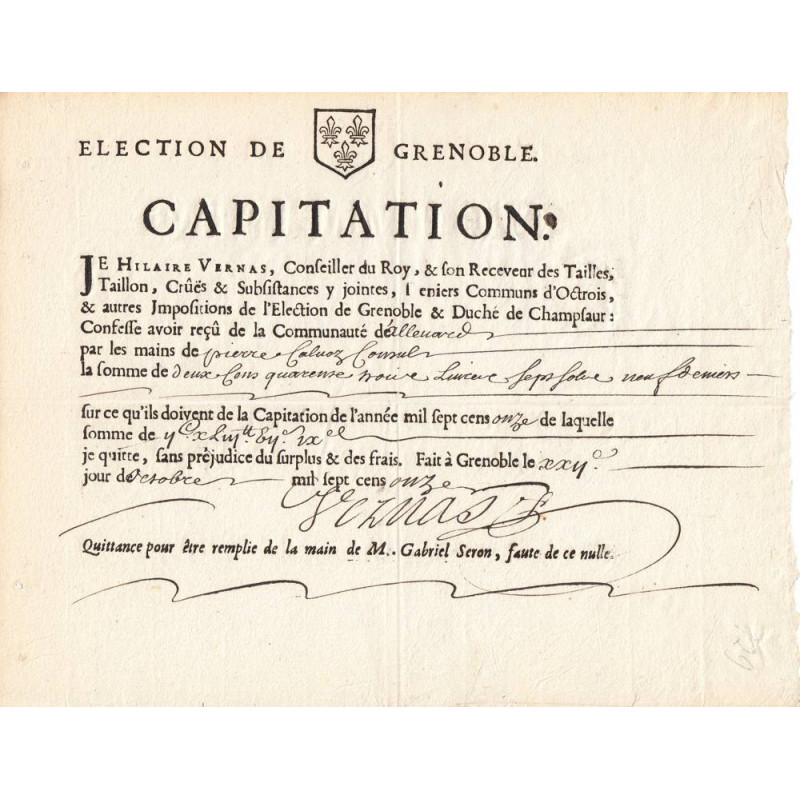 ELECTION DE GRENOBLE.
CAPITATION.
JE HILAIRE VERNAS, Conseiller du Roy, & son Receveur des Tailles,
Taillon, Crûës & Subsistances y jointes, eniers Communs d'Octrois,
& autres Impositions de l'Election de Grenoble & Duché de Champsaur:
Confesse avoir reçû de la Communauté d'allevard
par les mains de pierre Consul
la somme de deux Cens quarente Livres sept sols neuf deniers
sur ce qu'ils doivent de la Capitation de l'année mil sept cens onze de laquelle
somme de
je quitte, sans préjudice du surplus & des frais. Fait à Grenoble le xxij.e
jour de octobre mil sept cens onze
Vernas
Quittance pour être remplie de la main de M. Gabriel Seron, faute de ce nulle.